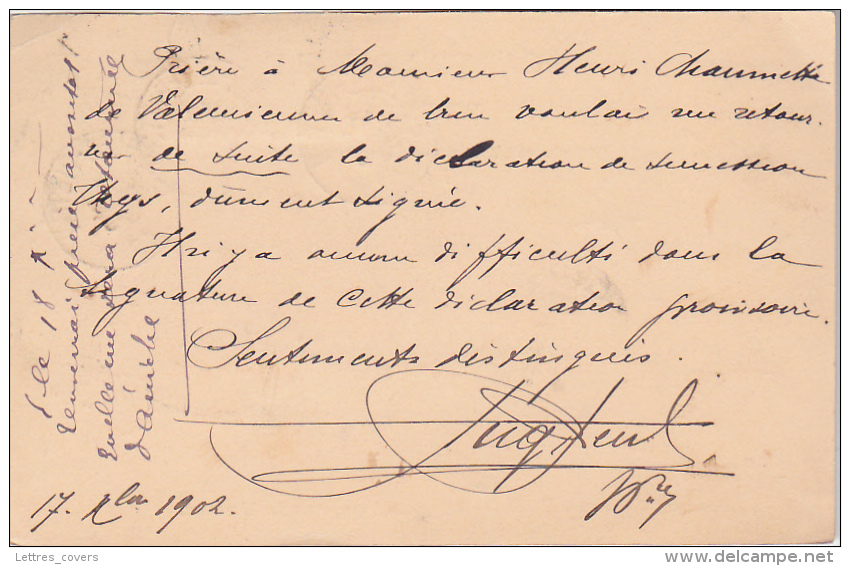 Prière à Monsieur Henri Chaumette
de Valenciennes de bien vouloir me retour-
ner de suite la déclaration de succession
Thys, dûment signée.
Il n'y a aucune difficulté dans la
signature de cette déclaration provisoire.
Sentiments distingués.
17. Xbre 1902.
le 18 Xre
d'Aniche
Lettres_covers
www.delcampe.net